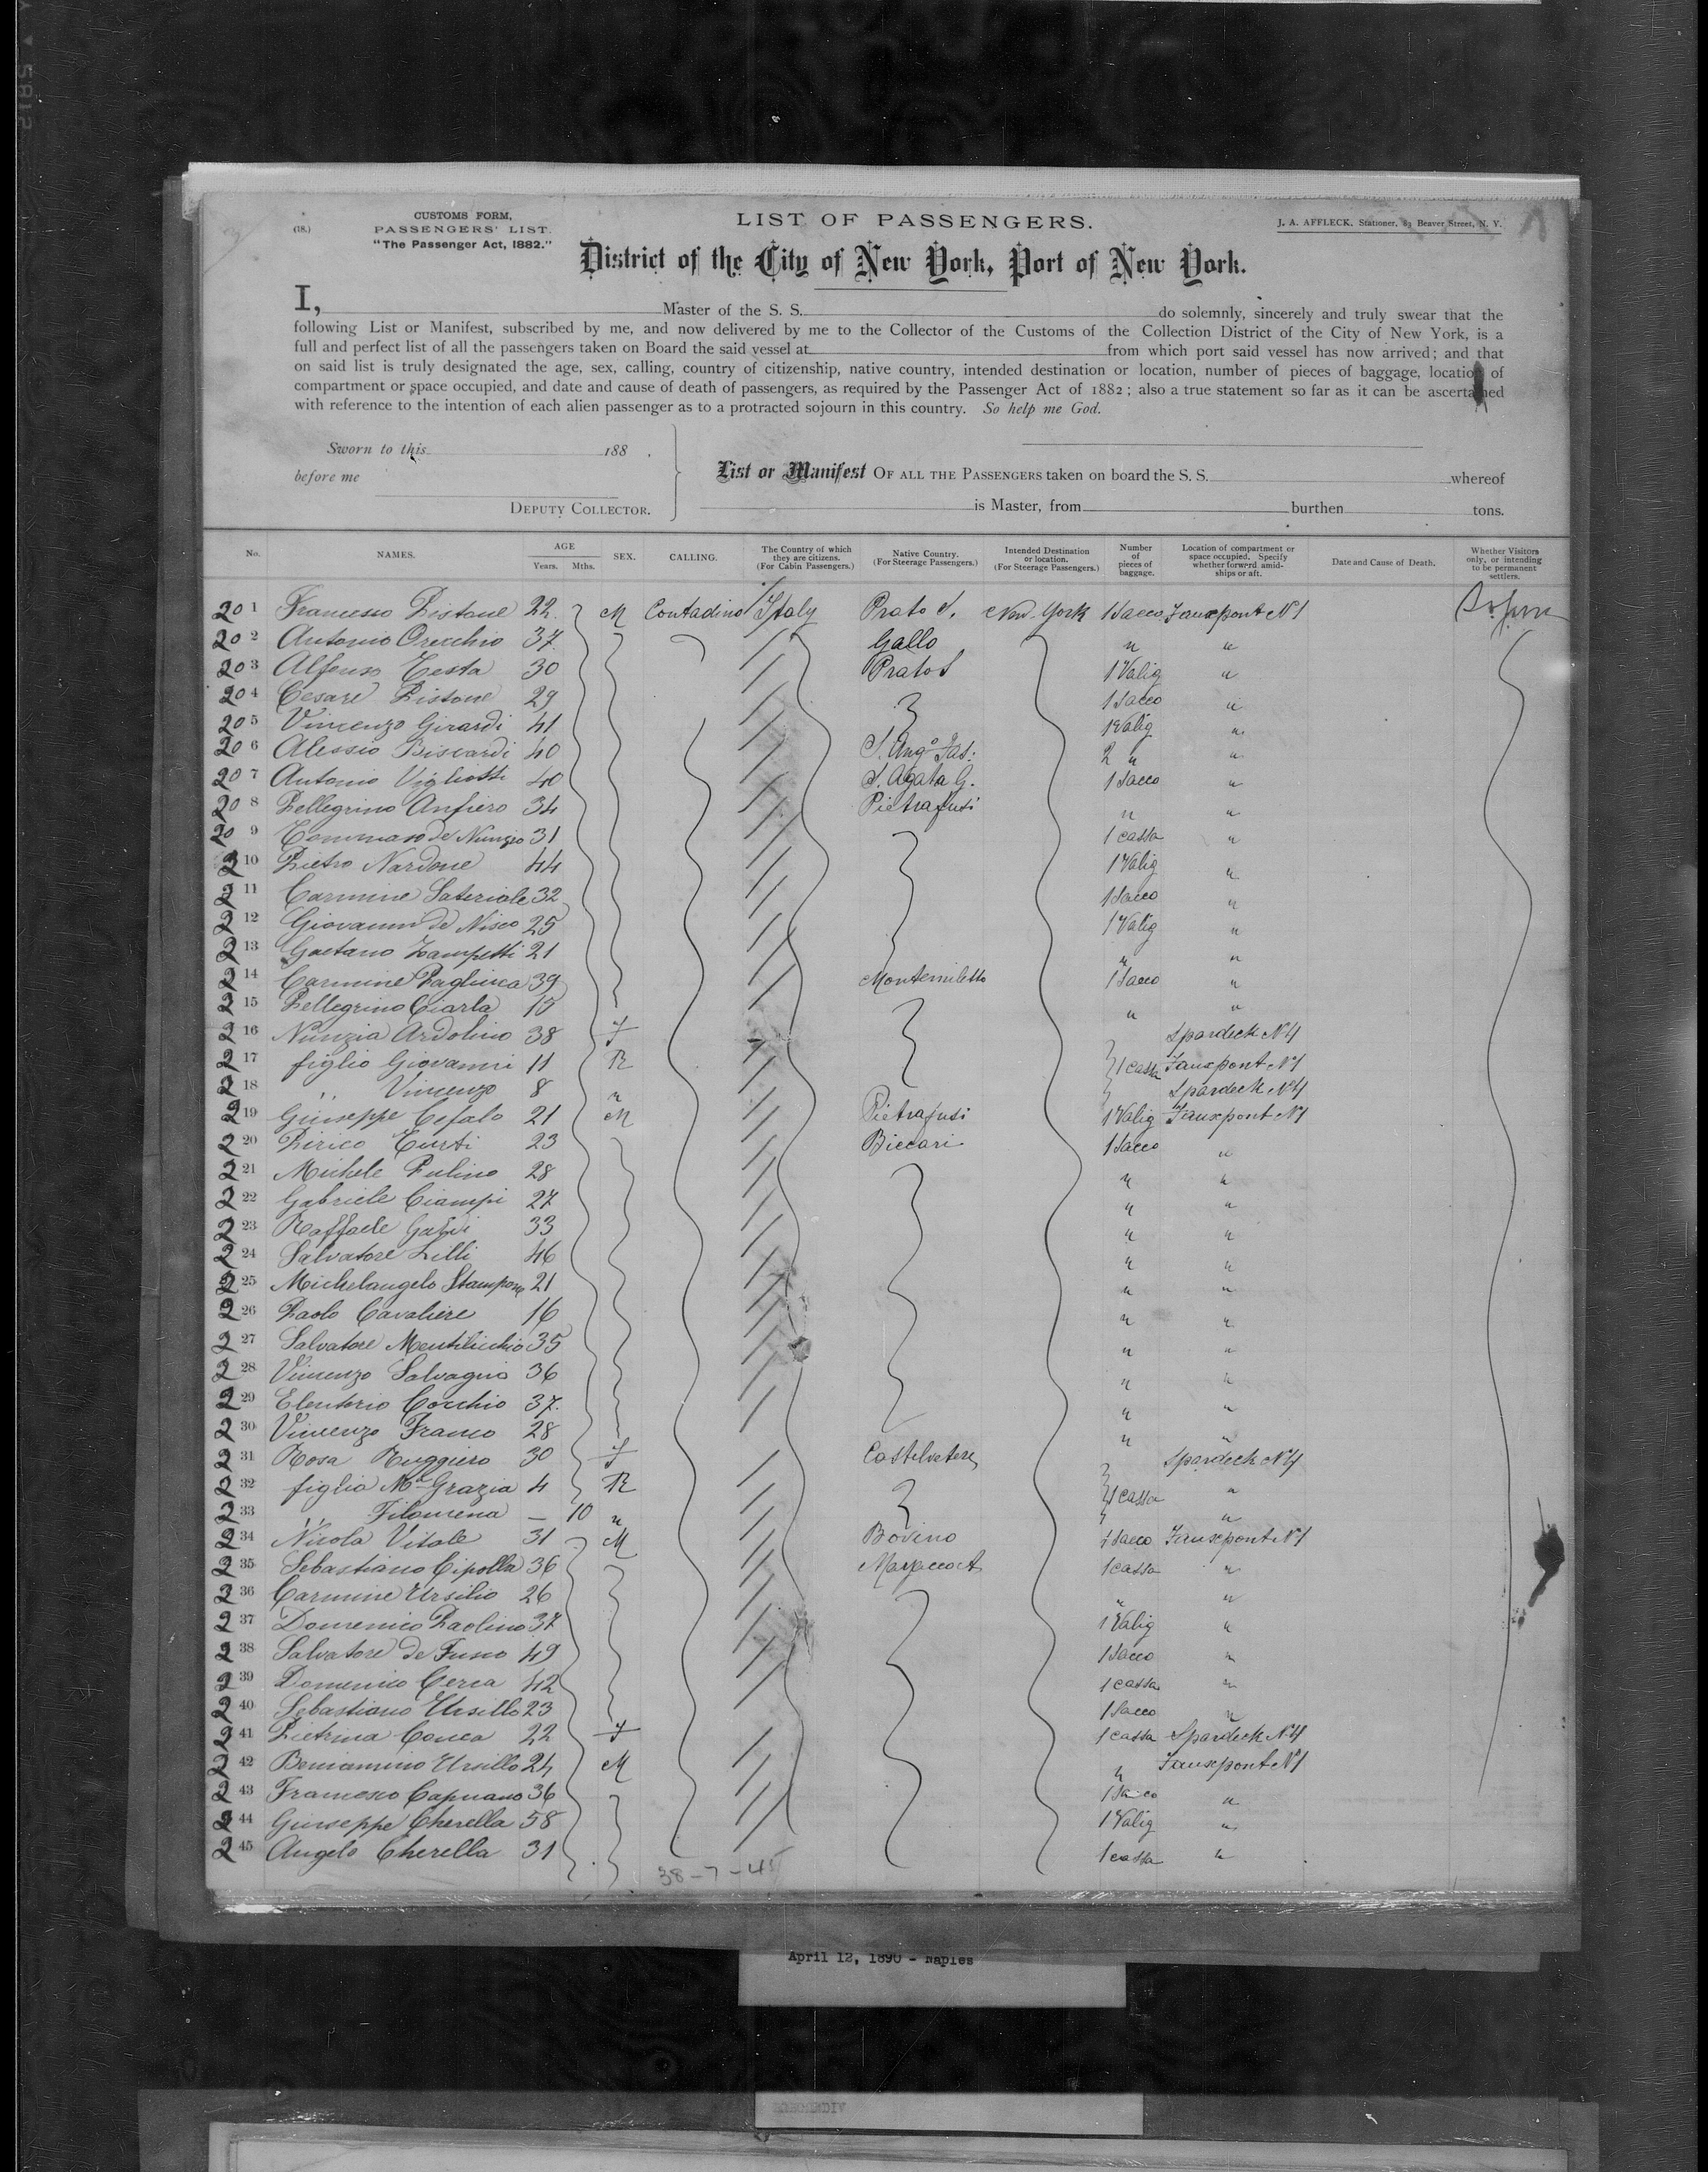 CUSTOMS FORM,
PASSENGERS' LIST.
"The Passenger Act, 1882."
(18.)
LIST OF PASSENGERS.
J. A. AFFLECK, Stationer, 63 Beaver Street, N. Y.
District of the City of New York, Port of New York.
I, Master of the S. S. do solemnly, sincerely and truly swear that the
following List or Manifest, subscribed by me, and now delivered by me to the Collector of the Customs of the Collection District of the City of New York, is a
full and perfect list of all the passengers taken on Board the said vessel at from which port said vessel has now arrived; and that
on said list is truly designated the age, sex, calling, country of citizenship, native country, intended destination or location, number of pieces of baggage, location of
compartment or space occupied, and date and cause of death of passengers, as required by the Passenger Act of 1882; also a true statement so far as it can be ascertained
with reference to the intention of each alien passenger as to a protracted sojourn in this country. So help me God.
Sworn to this 188 .
before me
DEPUTY COLLECTOR.
List or Manifest OF ALL THE PASSENGERS taken on board the S. S. whereof
is Master, from burthen tons.
No. NAMES. AGE Years. Mths. SEX. CALLING. The Country of which they are citizens. (For Cabin Passengers.) Native Country. (For Steerage Passengers.) Intended Destination or location. (For Steerage Passengers.) Number of pieces of baggage. Location of compartment or space occupied. Specify whether forward amidships or aft. Date and Cause of Death. Whether Visitors only, or intending to be permanent settlers.
201 Francesco Pistone 22 M Contadino Italy Prato S. New York 1 Sacco N1
202 Antonio Orecchio 37 Gallo "  "
203 Alfonso Testa 30 Prato S 1 Valig "
204 Cesare Pistone 29 1 Sacco "
205 Vincenzo Girardi 41 1 Valig "
206 Alessio Biscardi 40 2 " "
207 Antonio Vigliotti 40 S. Agata G. 1 Sacco "
208 Pellegrino Anfiero 34 Pietrafusi " "
209 Tommaso de Nunzio 31 1 cassa "
210 Pietro Nardone 44 1 Valig "
211 Carmine Sateriale 32 1 Sacco "
212 Giovanni de Nisco 25 1 Valig "
213 Gaetano Zampetti 21 " "
214 Carmine Pagliuca 39 Montemiletto 1 Sacco "
215 Pellegrino Ciarla 15 " "
216 Nunzia Ardolino 38 f Spardeck N4
217 figlio Giovanni 11 R 1 cassa N1
218 " Vincenzo 8 " Spardeck N4
219 Giuseppe Cefalo 21 M Pietrafusi 1 Valig N1
220 Pirico Curti 23 Biccari 1 Sacco "
221 Michele Pulino 28 " "
222 Gabriele Ciampi 27 " "
223 Raffaele 33 " "
224 Salvatore Lilli 46 " "
225 Michelangelo Stampone 21 " "
226 Paolo Cavaliere 16 " "
227 Salvatore Mentilicchio 35 " "
228 Vincenzo Salvagno 36 " "
229 Eleuterio Cocchio 37 " "
230 Vincenzo Franco 28 " "
231 Rosa Ruggiero 30 f Castelvetere Spardeck N4
232 figlia Ma Grazia 4 R 1 cassa "
233 " Filomena — 10 " "
234 Nicola Vitale 31 M Bovino 1 Sacco N1
235 Sebastiano Cipolla 36 1 cassa "
236 Carmine Ursilio 26 " "
237 Domenico Paolino 37 1 Valig "
238 Salvatore de Fusco 49 1 Sacco "
239 Domenico Cerca 42 1 cassa "
240 Sebastiano Ursillo 23 1 Sacco "
241 Pietrina Conca 22 f 1 cassa Spardeck N4
242 Beniamino Ursillo 24 M " N1
243 Francesco Capuano 36 1 Sacco "
244 Giuseppe Cherella 58 1 Valig "
245 Angelo Cherella 31 1 cassa "
38-7-45
April 12, 1890 - Naples